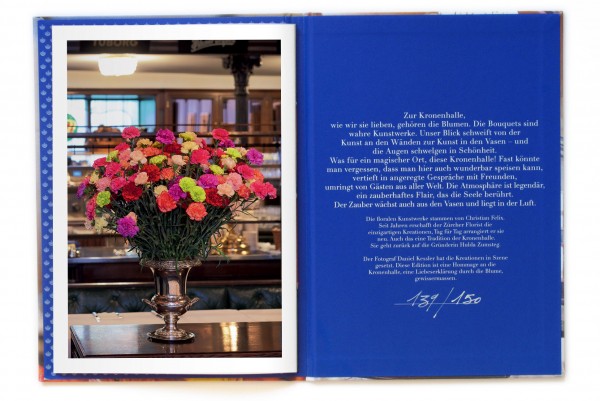 TUBORG
Zur Kronenhalle,
wie wir sie lieben, gehören die Blumen. Die Bouquets sind
wahre Kunstwerke. Unser Blick schweift von der
Kunst an den Wänden zur Kunst in den Vasen – und
die Augen schwelgen in Schönheit.
Was für ein magischer Ort, diese Kronenhalle! Fast könnte
man vergessen, dass man hier auch wunderbar speisen kann,
vertieft in angeregte Gespräche mit Freunden,
umringt von Gästen aus aller Welt. Die Atmosphäre ist legendär,
ein zauberhaftes Flair, das die Seele berührt.
Der Zauber wächst auch aus den Vasen und liegt in der Luft.
Die floralen Kunstwerke stammen von Christian Felix.
Seit Jahren erschafft der Zürcher Florist die
einzigartigen Kreationen, Tag für Tag arrangiert er sie
neu. Auch das eine Tradition der Kronenhalle.
Sie geht zurück auf die Gründerin Hulda Zumsteg.
Der Fotograf Daniel Kessler hat die Kreationen in Szene
gesetzt. Diese Edition ist eine Hommage an die
Kronenhalle, eine Liebeserklärung durch die Blume,
gewissermassen.
139/150